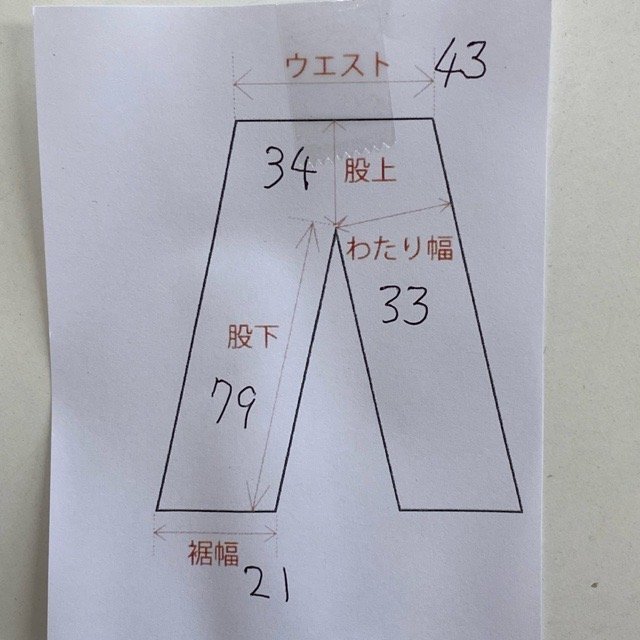 ウエスト 43
34 股上
わたり幅
33
股下
79
裾幅
21